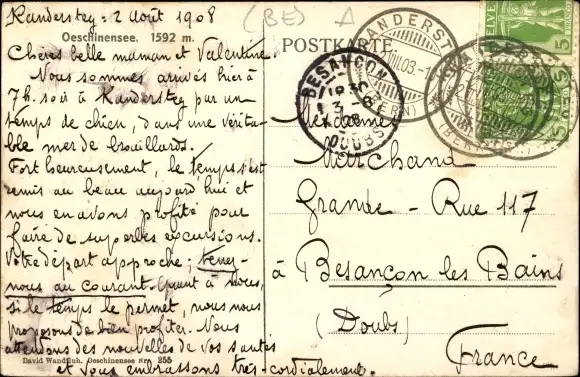 Kandersteg - 2 Août 1908
(BE) A
Oeschinensee. 1592 m.
Chères belle maman et Valentine
Nous sommes arrivés hier à
7h. soir à Kandersteg par un
temps de chien, dans une vérita-
ble mer de brouillards.
Fort heureusement, le temps s'est
remis au beau aujourd'hui et
nous en avons profité pour
faire de superbes excursions.
Votre départ approche; tenez-
nous au courant. Quant à nous,
si le temps le permet, nous nous
proposons de bien profiter. Nous
attendons des nouvelles de vos santés
et vous embrassons très-cordialement.
David Wandfluh, Oeschinensee Nr. 255
POSTKARTE
KANDERSTEG
(BERN)
BESANÇON
DOUBS
HELVETIA
5
5
Marchand
Grande - Rue 117
à Besançon les Bains
(Doubs)
France